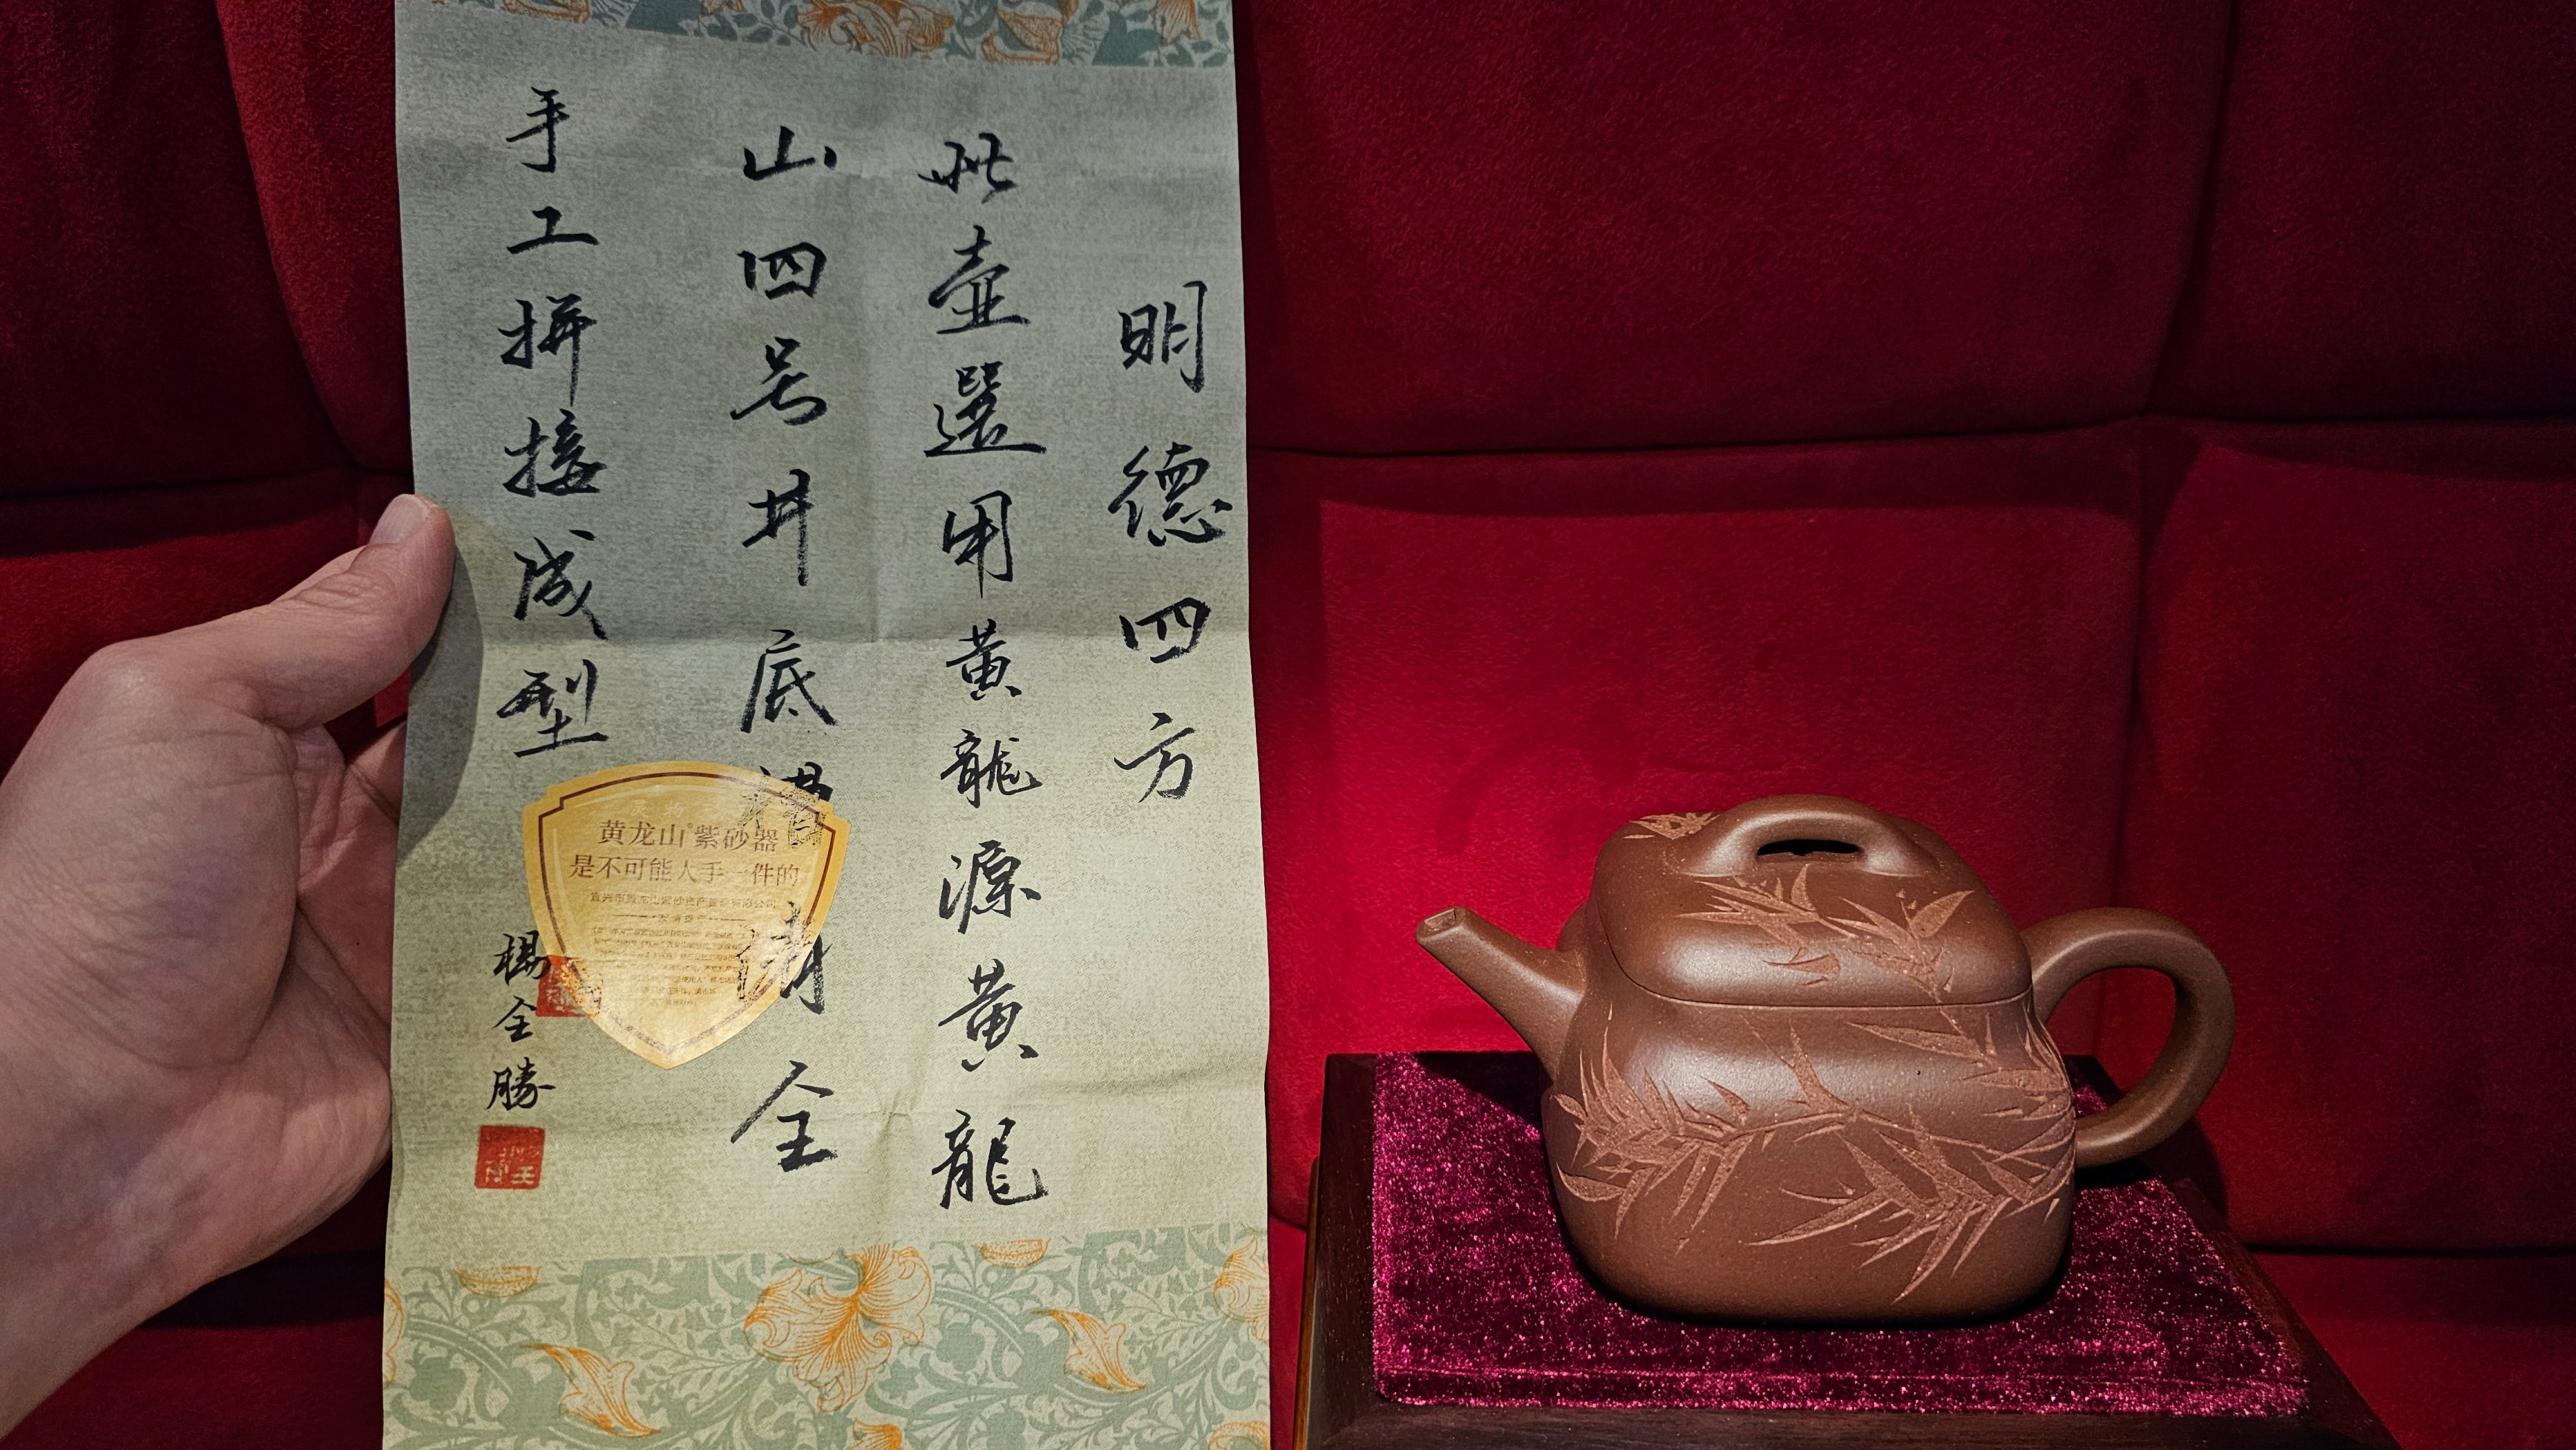 明德四方
此壺選用黃龍源黃龍
山四号井底槽清全
手工拼接成型
楊全勝
黄龙山®紫砂器
是不可能人手一件的
宜兴市黄龙山紫砂矿产置业有限公司